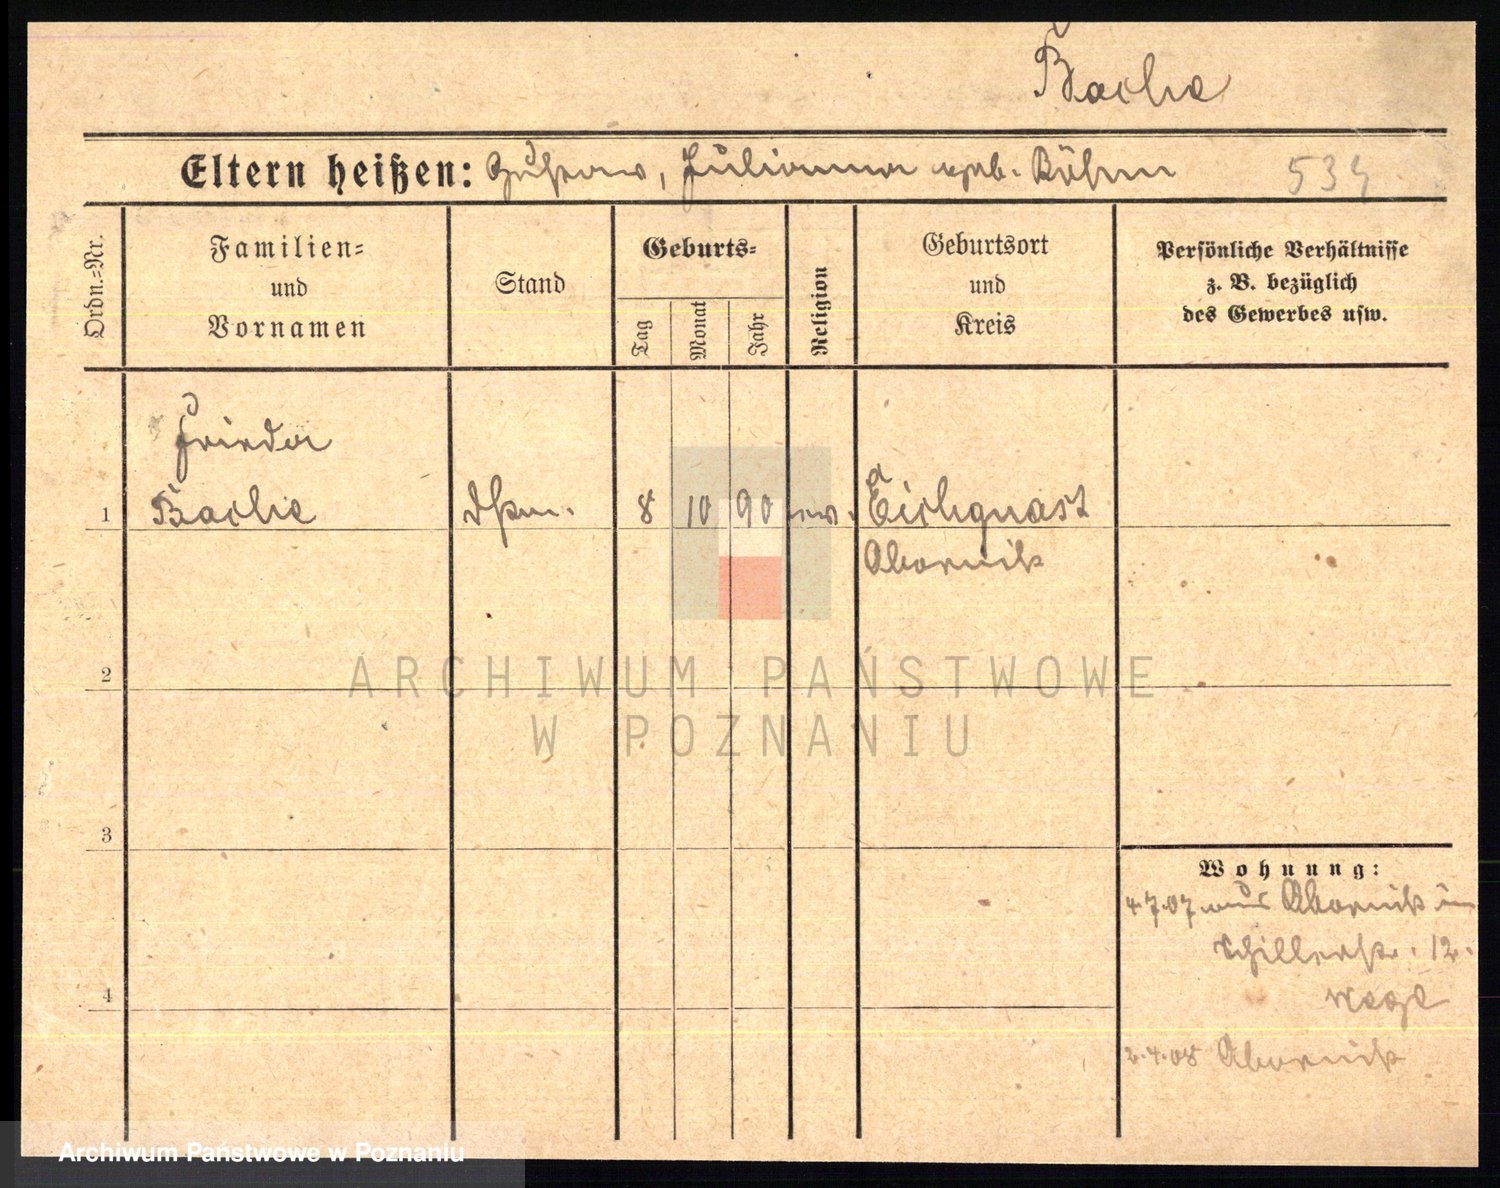 Bache
Eltern heißen: Gustav, Julianna geb. Böhm 534
Ordn.=Nr.
Familien=
und
Vornamen
Stand
Geburts=
Tag
Monat
Jahr
Religion
Geburtsort
und
Kreis
Persönliche Verhältnisse
z. B. bezüglich
des Gewerbes usw.
Frieda
1 Bache Dstm. 8 10 90 ev. Eichquast
Obornik
2
ARCHIWUM PAŃSTWOWE
W POZNANIU
3
Wohnung:
4.7.07 aus Obornik in
Schillerstr. 12.
4
2.4.08 Obornik
Archiwum Państwowe w Poznaniu